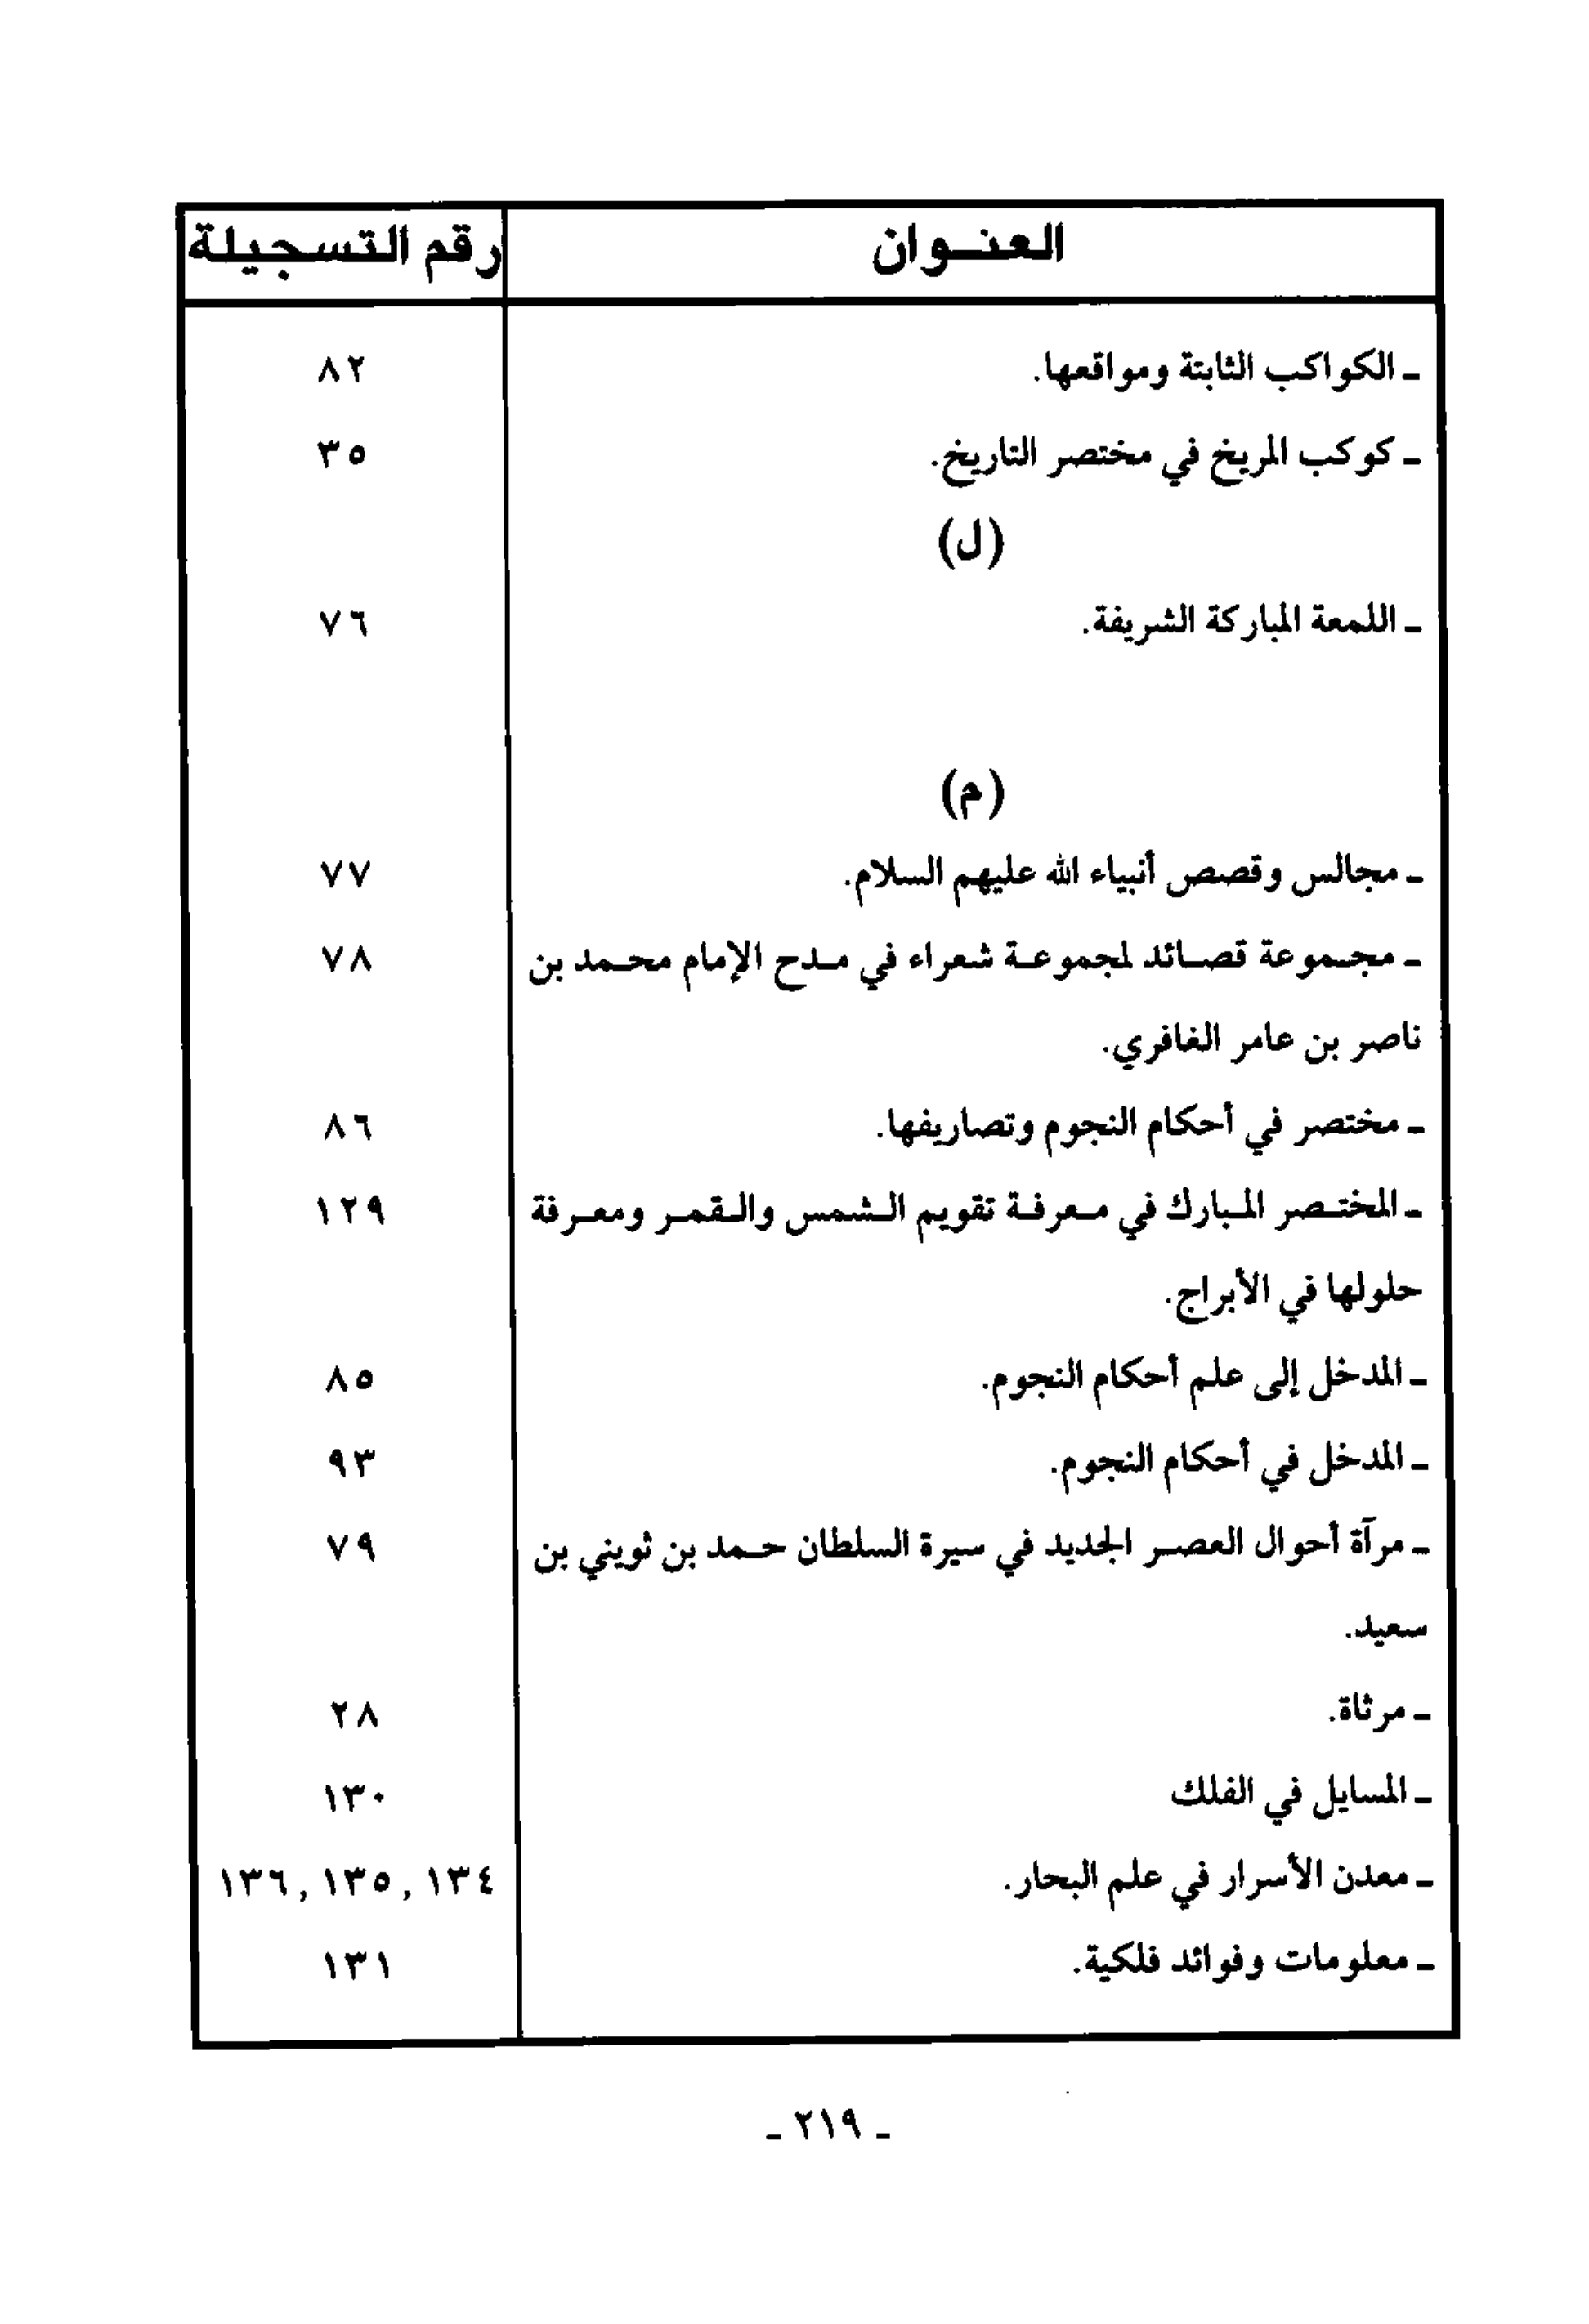 العنـوان رقم التسجيلة
ـ الكواكب الثابتة ومواقعها. ٨٢
ـ كوكب المريخ في مختصر التاريخ. ٣٥
(ل)
ـ اللمعة المباركة الشريفة. ٧٦
(م)
ـ مجالس وقصص أنبياء الله عليهم السلام. ٧٧
ـ مجموعة قصائد لمجموعة شعراء في مدح الإمام محمد بن ٧٨
ناصر بن عامر الغافري.
ـ مختصر في أحكام النجوم وتصاريفها. ٨٦
ـ المختصر المبارك في معرفة تقويم الشمس والقمر ومعرفة ١٢٩
حلولها في الأبراج.
ـ المدخل إلى علم أحكام النجوم. ٨٥
ـ المدخل في أحكام النجوم. ٩٣
ـ مرآة أحوال العصر الجديد في سيرة السلطان حمد بن ثويني بن ٧٩
سعيد.
ـ مرثاة. ٢٨
ـ المسايل في الفلك ١٣٠
ـ معدن الأسرار في علم البحار. ١٣٤ , ١٣٥ , ١٣٦
ـ معلومات وفوائد فلكية. ١٣١
ـ ٢١٩ ـ